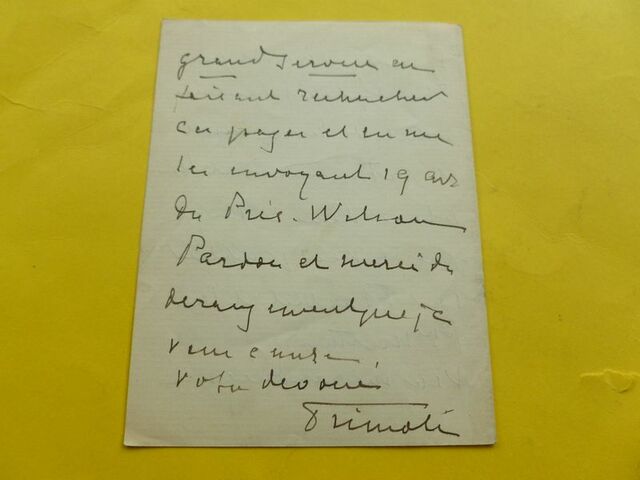 grand service en
faisant rechercher
ces pages et en me
les envoyant 19 av
du Prés. Wilson
Pardon et merci du
derangement que je
vous cause,
votre devoué
Primoli